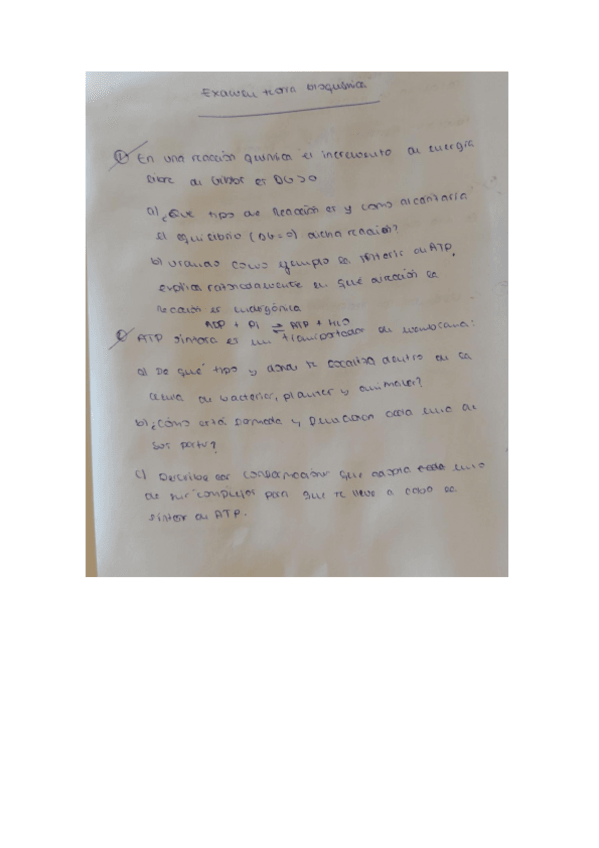 Examen teoría bioquímica
1. En una reacción química el incremento de energía
libre de Gibbs es DG>0
a) ¿Que tipo de Reacción es y como alcanzaría
el equilibrio (DG=0) dicha reacción?
b) usando como ejemplo la síntesis de ATP,
explica razonadamente en qué dirección la
reacción es endergónica
ADP + Pi ⇌ ATP + H2O
2. ATP sintasa es un transportador de membrana:
a) De qué tipo y donde se localiza dentro de la
célula de bacterias, plantas y animales?
b) ¿Cómo está formada y función cada una de
sus partes?
c) Describe las conformaciones que adopta cada uno
de sus complejos para que se lleve a cabo la
síntesis de ATP.